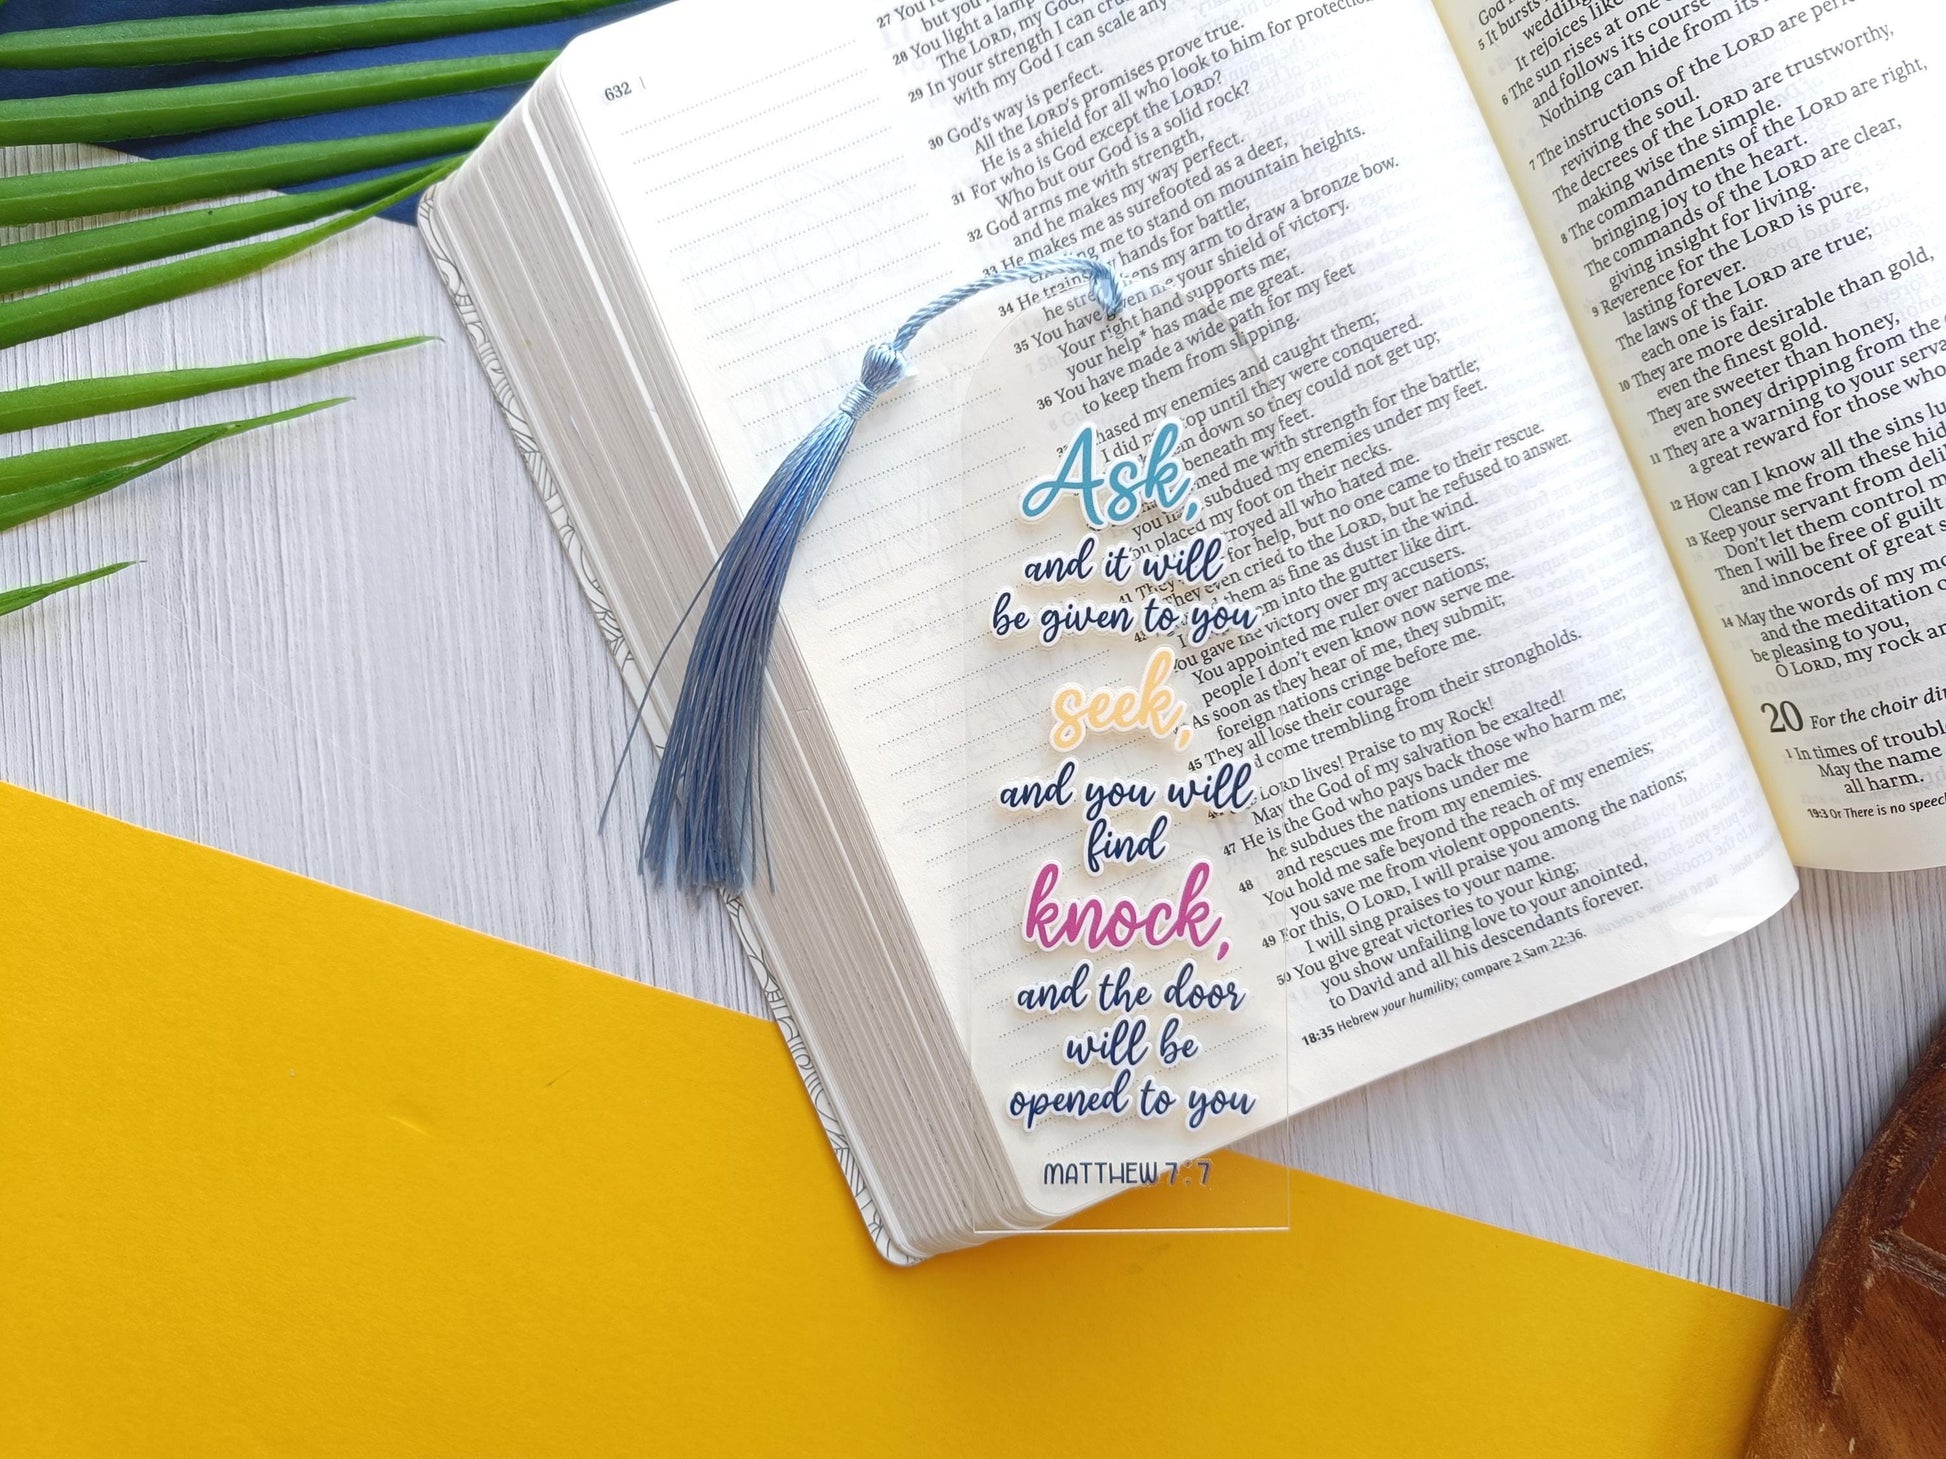 632 |
28 You light a lamp
The LORD, my God,
In your strength I can
with my God I can scale any
29
30 God's way is perfect.
All the LORD's promises prove true.
He is a shield for all who look to him for protection
31 For who is God except the LORD?
Who but our God is a solid rock?
32 God arms me with strength,
and he makes my way perfect.
33 He makes me as surefooted as a deer,
me to stand on mountain heights.
34 He trains my hands for battle;
my arm to draw a bronze bow.
35 You have given me your shield of victory.
Your right hand supports me;
your help* has made me great.
36 You have made a wide path for my feet
to keep them from slipping.
my enemies and caught them;
I did not stop until they were conquered.
down so they could not get up;
beneath my feet.
me with strength for the battle;
subdued my enemies under my feet.
placed my foot on their necks.
all who hated me.
for help, but no one came to their rescue.
They even cried to the LORD, but he refused to answer.
them as fine as dust in the wind.
into the gutter like dirt.
You gave me victory over my accusers.
You appointed me ruler over nations;
people I don't even know now serve me.
As soon as they hear of me, they submit;
foreign nations cringe before me.
They all lose their courage
come trembling from their strongholds.
45
LORD lives! Praise to my Rock!
May the God of my salvation be exalted!
47 He is the God who pays back those who harm me;
he subdues the nations under me
48 and rescues me from my enemies.
You hold me safe beyond the reach of my enemies;
you save me from violent opponents.
49 For this, O LORD, I will praise you among the nations;
I will sing praises to your name.
50 You give great victories to your king;
you show unfailing love to your anointed,
to David and all his descendants forever.
18:35 Hebrew your humility; compare 2 Sam 22:36.
Ask,
and it will
be given to you
seek,
and you will
find
knock,
and the door
will be
opened to you
MATTHEW 7:7
God
5 It bursts
wedding
It rejoices like
6 The sun rises at one
and follows its course
Nothing can hide from its
7 The instructions of the LORD are perfect
reviving the soul.
The decrees of the LORD are trustworthy,
making wise the simple.
8 The commandments of the LORD are right,
bringing joy to the heart.
The commands of the LORD are clear,
giving insight for living.
9 Reverence for the LORD is pure,
lasting forever.
The laws of the LORD are true;
each one is fair.
10 They are more desirable than gold,
even the finest gold.
They are sweeter than honey,
even honey dripping from the
11 They are a warning to your
a great reward for those who
12 How can I know all the sins
Cleanse me from these
13 Keep your servant from
Don't let them control
Then I will be free of guilt
and innocent of great
14 May the words of my
and the meditation
be pleasing to you,
O LORD, my rock
20 For the choir
1 In times of
May the name
all harm.
19:3 Or There is no